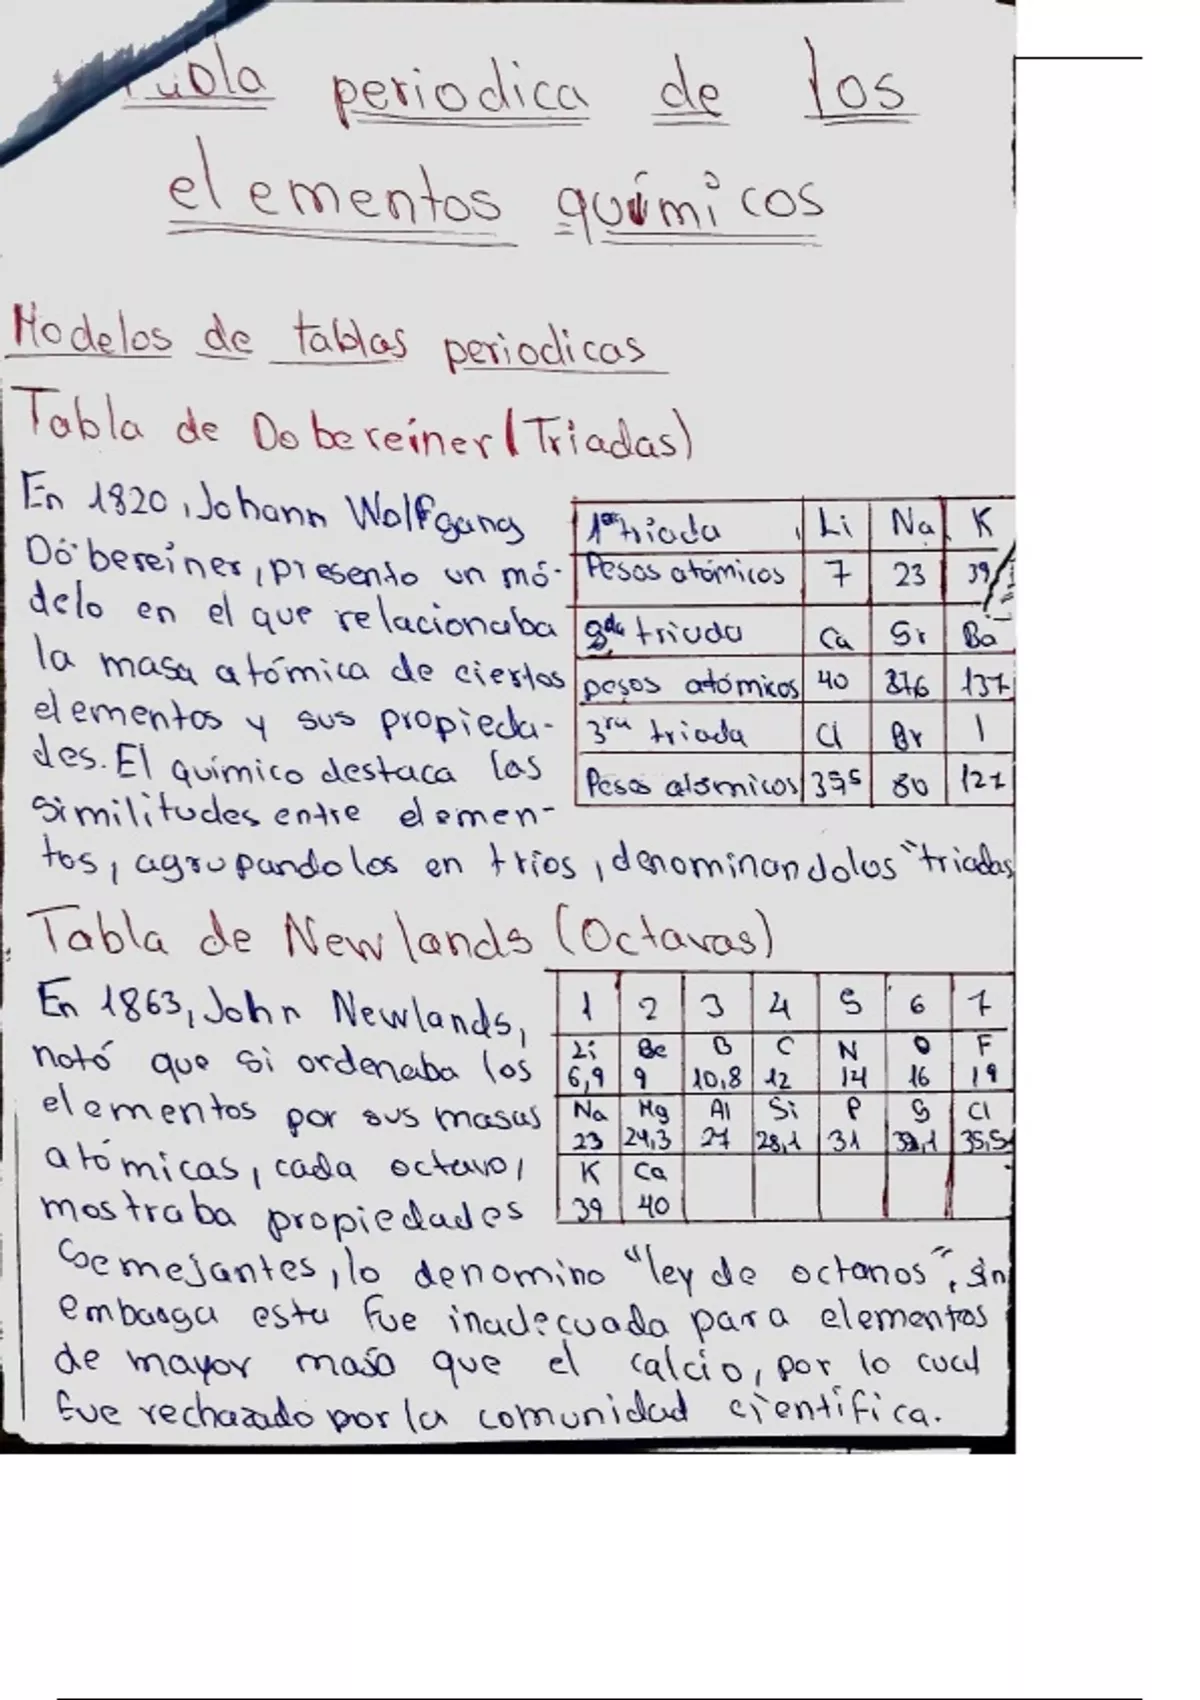 Tabla periodica de los
elementos químicos
Modelos de tablas periodicas
Tabla de Dobereiner (Triadas)
En 1820, Johann Wolfgang
Dobereiner, presento un mó-
delo en el que relacionaba
la masa atómica de ciertos
elementos y sus propieda-
des. El químico destaca las
similitudes entre elemen-
tos, agrupandolos en trios, denominandolos "triadas
1ra triada Li Na K
Pesos atómicos 7 23 39
2da triada Ca Sr Ba
pesos atómicos 40 876 137
3ra triada Cl Br I
Pesos atómicos 355 80 127
Tabla de Newlands (Octavas)
En 1863, John Newlands,
notó que si ordenaba los
elementos por sus masas
atómicas, cada octavo,
mostraba propiedades
semejantes, lo denomino "ley de octanos", sin
embargo esta fue inadecuada para elementos
de mayor masa que el calcio, por lo cual
fue rechazado por la comunidad científica.
1 2 3 4 5 6 7
Li Be B C N O F
6,9 9 10,8 12 14 16 19
Na Mg Al Si P S Cl
23 24,3 27 28,1 31 32,1 35,5
K Ca
39 40